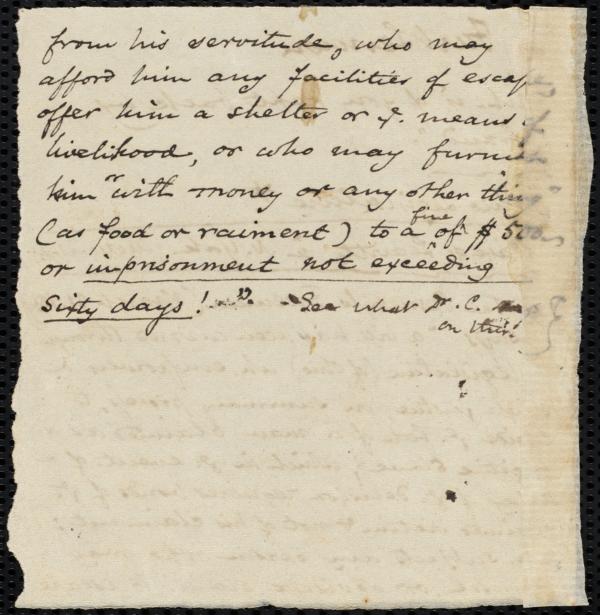 from his servitude, who may
afford him any facilities of escap
offer him a shelter or ye. means
livelihood, or who may furni
him or with money or any other thing
(as food or raiment) to a fine of $ 500
or imprisonment not exceeding
sixty days! See what Dr. C.
on this!